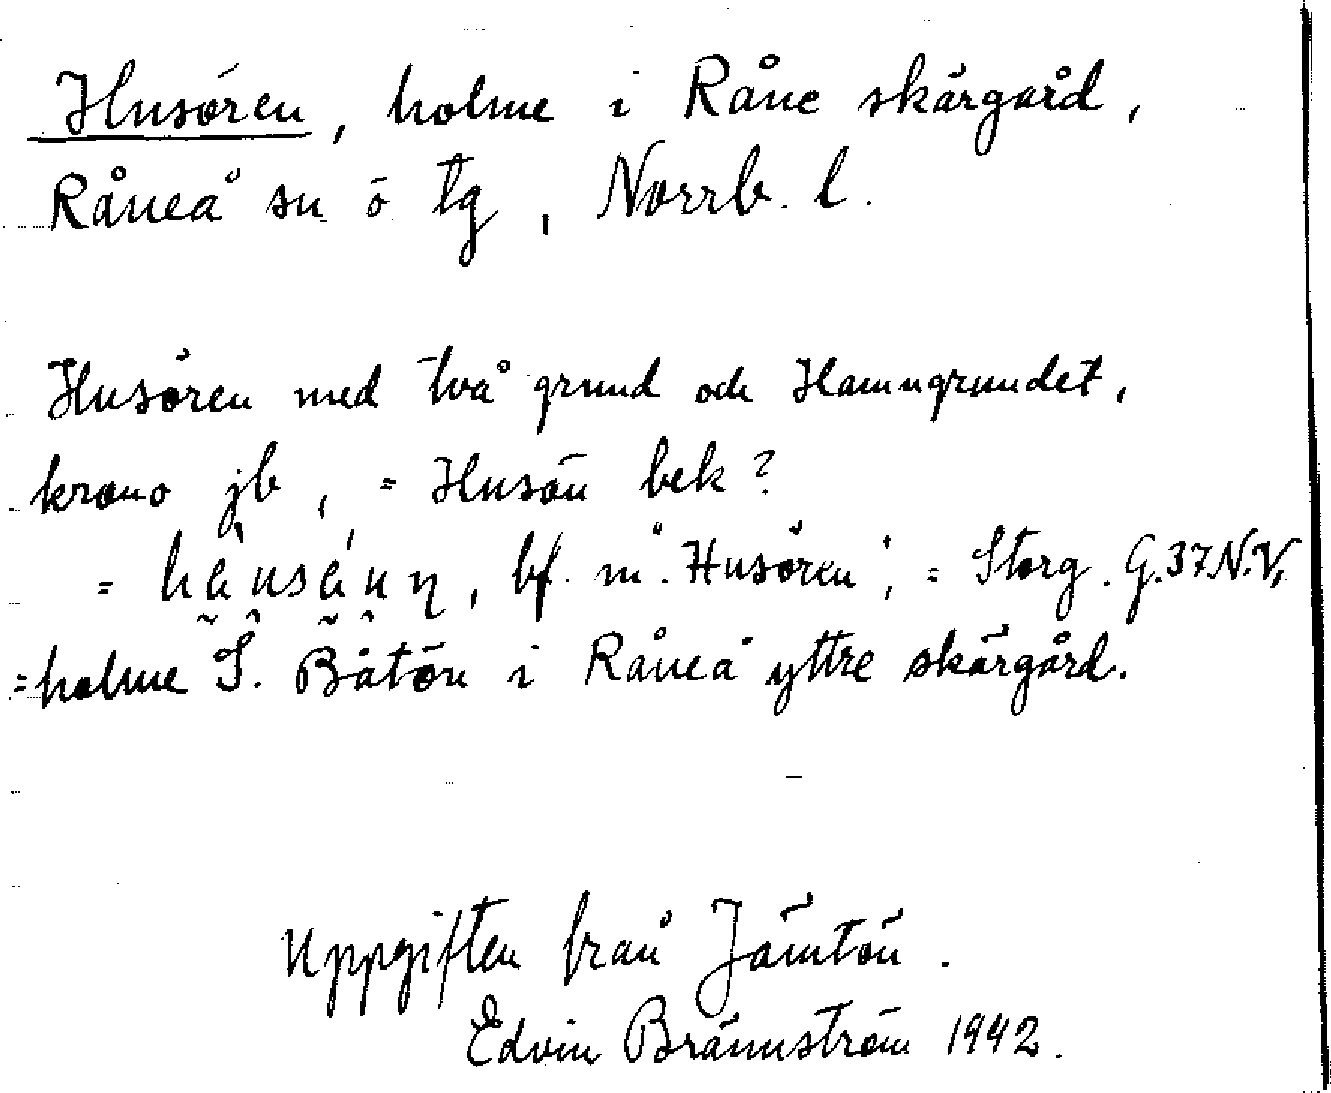 Husören, holme i Råne skärgård,
Råneå sn ö tg, Norrb. l.
Husören med två grund och Hamngrundet,
krono jb, = Husön bek?
= bf. m. "Husören"; = Storg. G.37 N.V,
= holme S. Båtön i Råneå yttre skärgård.
Uppgiften från Jämtön.
Edvin Brännström 1942.